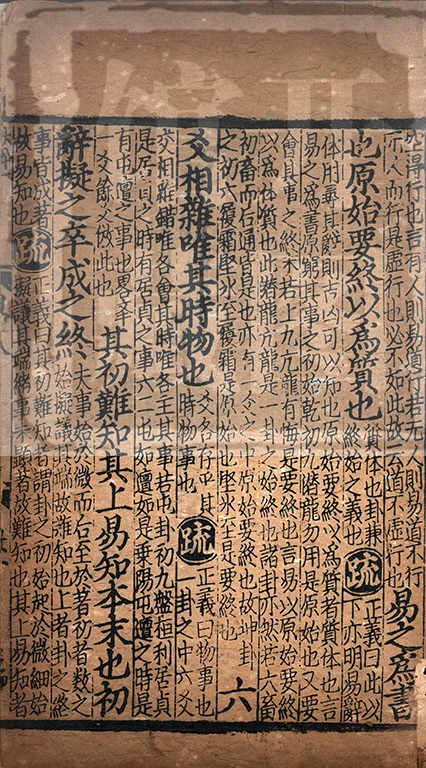 先得行也言有人則易道行若无人則易道不行
而人而行是虛行也必不如此故云道不虛行也
易之爲書
也原始要終以爲質也
質體也卦兼
終始之義也
疏
正義曰此以
下亦明易辭
體用尋其辭則吉凶可以知也原始要終以爲質者質體也言
易之爲書原窮其事之初始乾初九潛龍勿用是原始也又要
會其事之終末若上九亢龍有悔是要終也言易以原始要終
以爲體質也此潛龍亢龍是一卦之始終也諸卦亦然若大畜
初畜而后通皆是也亦有一爻之中原始要終也故坤卦
之初六履霜堅冰至履霜是原始也堅冰至是要終也
六
爻相雜唯其時物也
爻各存乎其
時物事也
疏
正義曰物事也
一卦之中六爻
交相雜錯唯各會其時唯各主其事若屯卦初九盤桓利居貞
是居貞之時有居貞之事六二屯如邅如是乘陽屯邅之時是
有屯邅之事也畧舉一
爻餘爻倣此也
其初難知其上易知本末也初
辭擬之卒成之終
夫事始於微而后至於著初者數之
始擬議其端故難知也上者卦之終
事皆成著
故易知也
疏
正義曰其初難知者謂卦之初始起於微細始
擬議其端緒事未顯著故難知也其上易知者